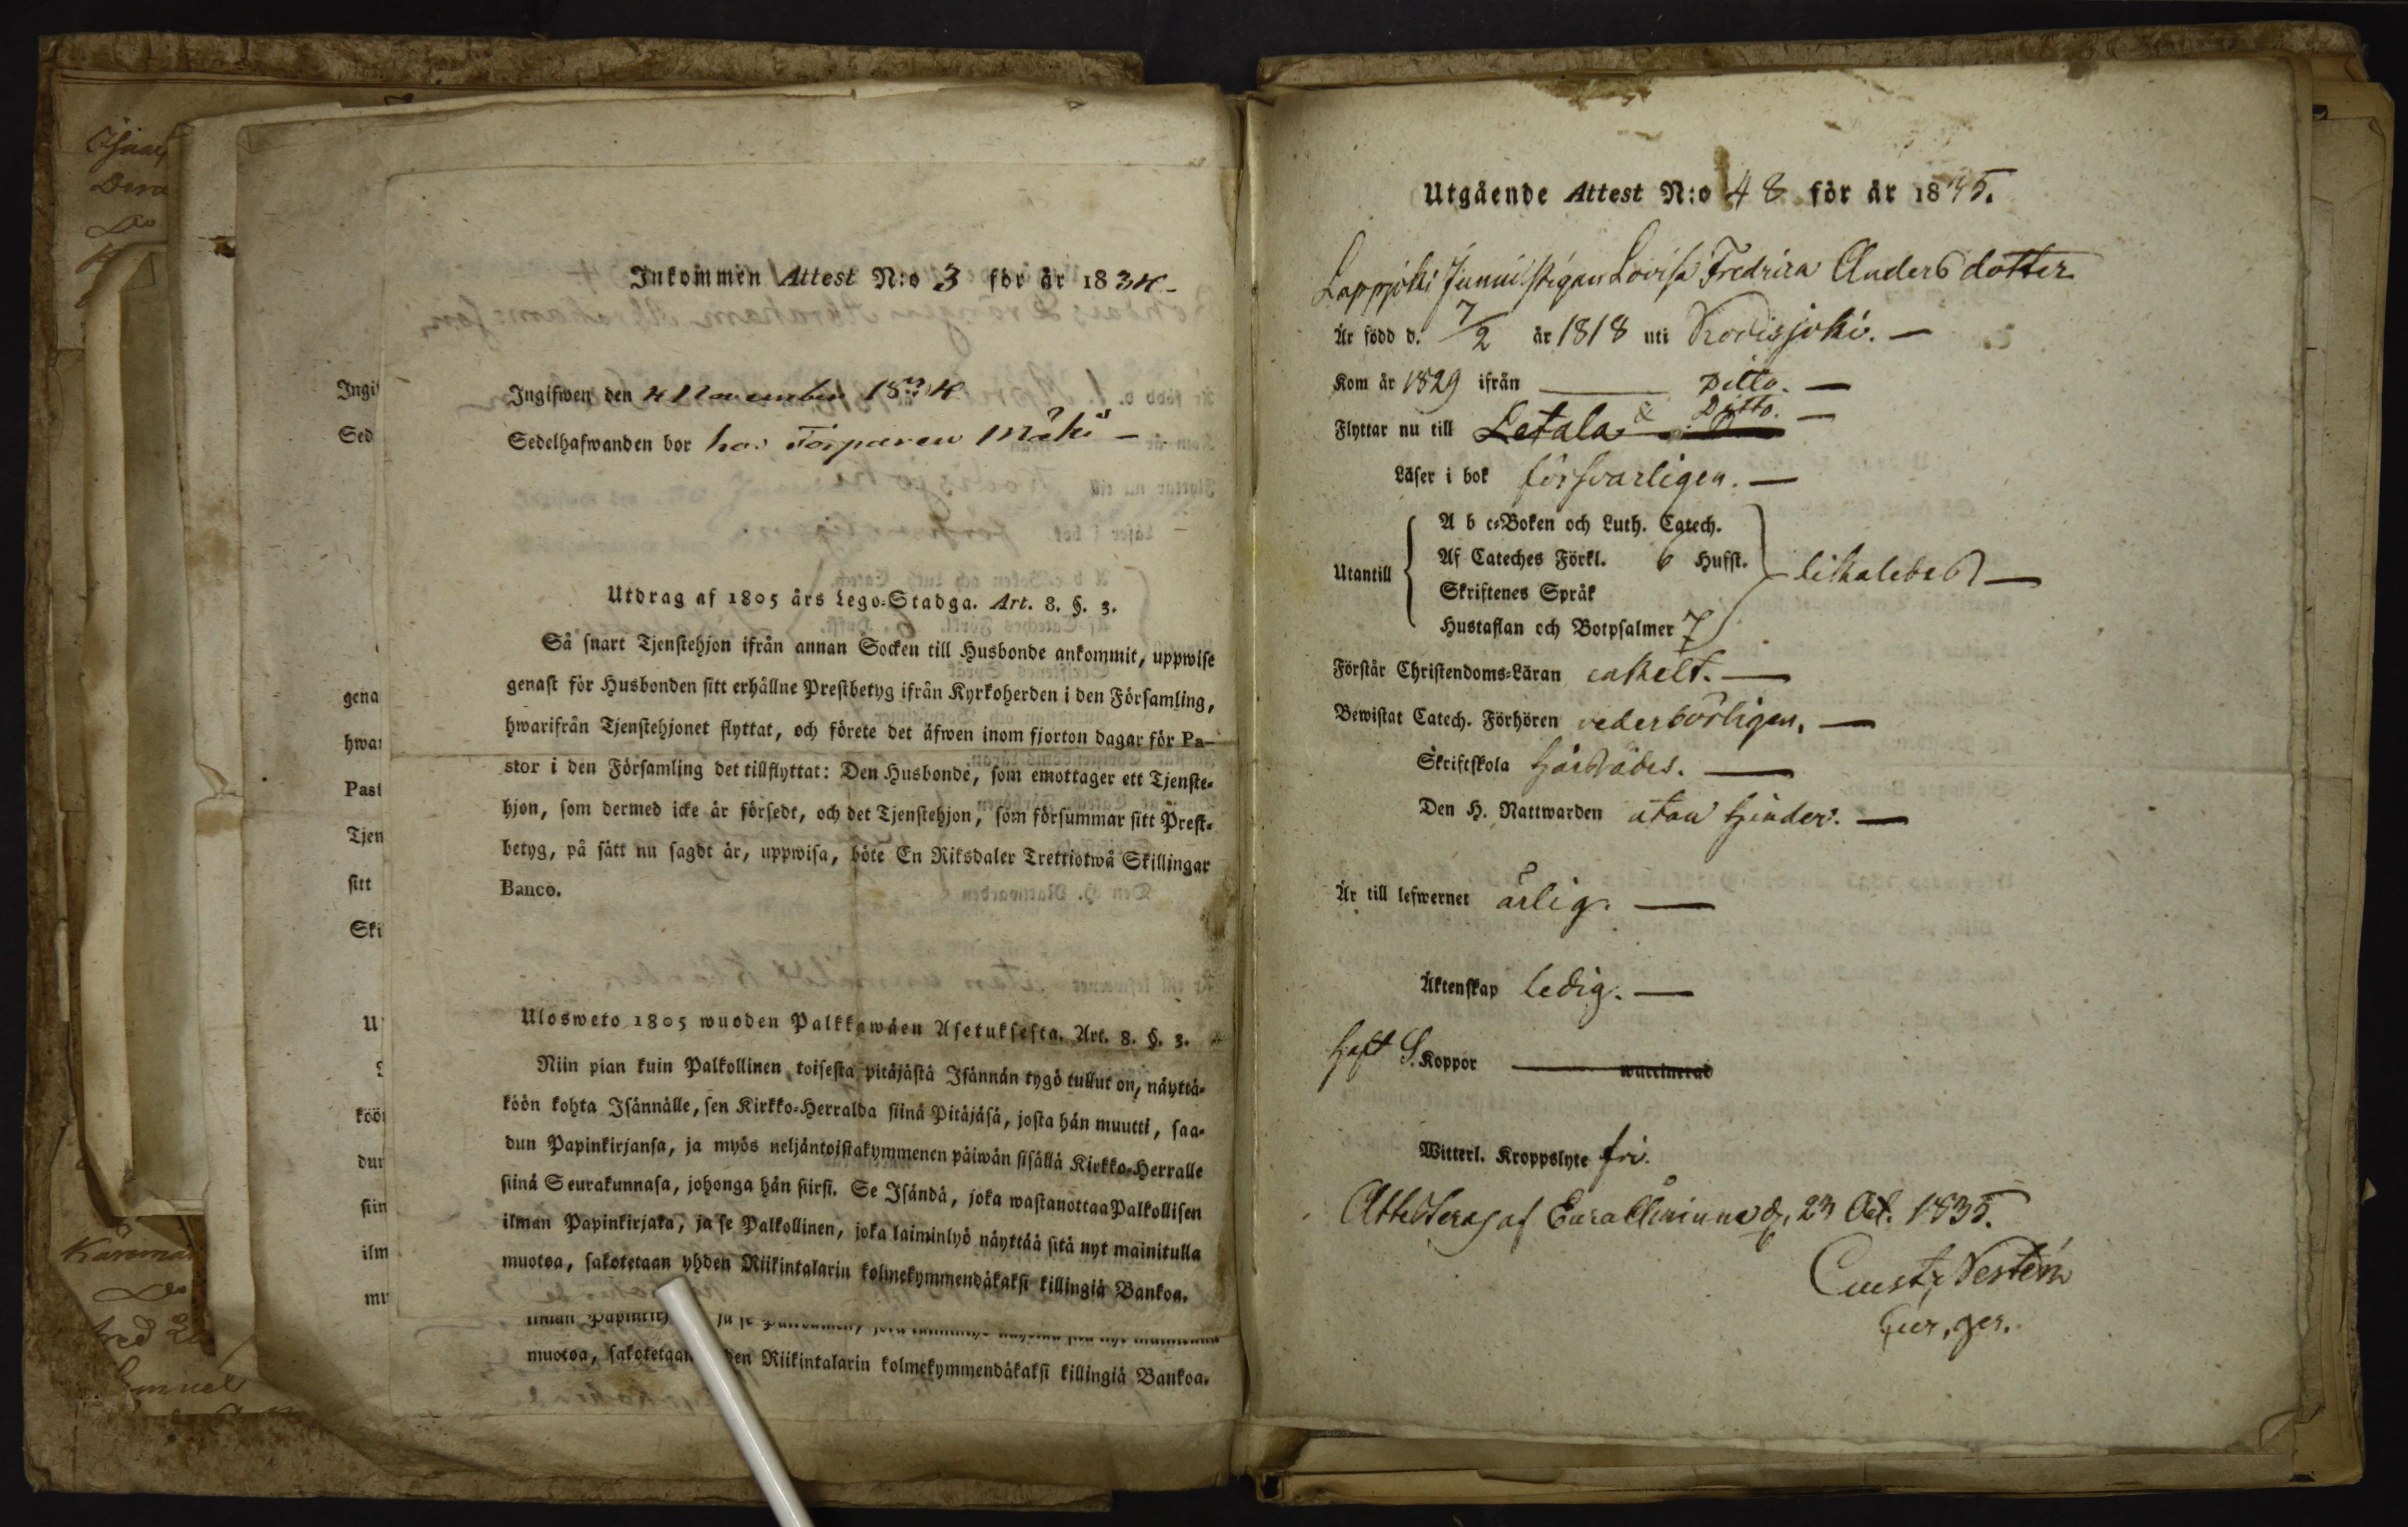 Inkommen Attest N:o 3 för år 1834
Ingifwen den 4 November 1834
Sedelhafwanden bor hos Torparen Mäki –
Utdrag af 1805 års Lego-Stadga. Art. 8. §. 3.
Så snart Tjenstehjon ifrån annan Socken till Husbonde ankommit, uppwise
genast för Husbonden sitt erhållne Prestbetyg ifrån Kyrkoherden i den Församling,
hwarifrån Tjenstehjonet flyttat, och förete det äfwen inom fjorton dagar för Pa-
stor i den Församling det tillflyttat: Den Husbonde, som emottager ett Tjenste-
hjon, som dermed icke är försedt, och det Tjenstehjon, som försummar sitt Prest-
betyg, på sätt nu sagdt är, uppwisa, böte En Riksdaler Trettiotwå Skillingar
Banco.
Ulosweto 1805 wuoden Palkkawäen Asetuksesta. Art. 8. §. 3.
Niin pian kuin Palkollinen toisesta pitäjästä Isännän tygö tullut on, näyttä-
köön kohta Isännälle, sen Kirkko-Herralda siinä Pitäjäsä, josta hän muutti, saa-
dun Papinkirjansa, ja myös neljäntoistakymmenen päiwän sisällä Kirkko-Herralle
siinä Seurakunnasa, johonga hän siirsi. Se Isändä, joka wastanottaa Palkollisen
ilman Papinkirjata, ja se Palkollinen, joka laiminlyö näyttää sitä nyt mainitulla
muotoa, sakotetaan yhden Riikintalarin kolmekymmendäkaksi killingiä Bankoa.
muotoa, sakotetaan den Riikintalarin kolmekymmendäkaksi killingiä Bankoa.
Ingif
Sed
gena
hwar
Past
Tjen
sitt
Ski
köö
dun
siin
ilm
mu
Utgående Attest N:o 48 för år 1835.
Lappjoki Junnu pigan Lovisa Fredrica Anders dotter
Är född d. 7/2 år 1818 uti Hrodisjoki. –
Kom år 1829 ifrån Ditto. –
Flyttar nu till Letala Ditto. –
Läser i bok försvarligen. –
Utantill
A b c-Boken och Luth. Catech.
Af Cateches Förkl. 6 Hufst.
Skriftenes Språk
Hustaflan och Botpsalmer 7
likaledes –
Förstår Christendoms-Läran enkelt. –
Bewistat Catech. Förhören vederbörligen. –
Skriftskola härstädes. –
Den H. Nattwarden utan hinder. –
Är till lefwernet ärlig. –
Äktenskap ledig. –
haft S. Koppor waccinerad
Witterl. Kroppslyte fri.
Attesteras af Euraåminne d. 23 Oct. 1835.